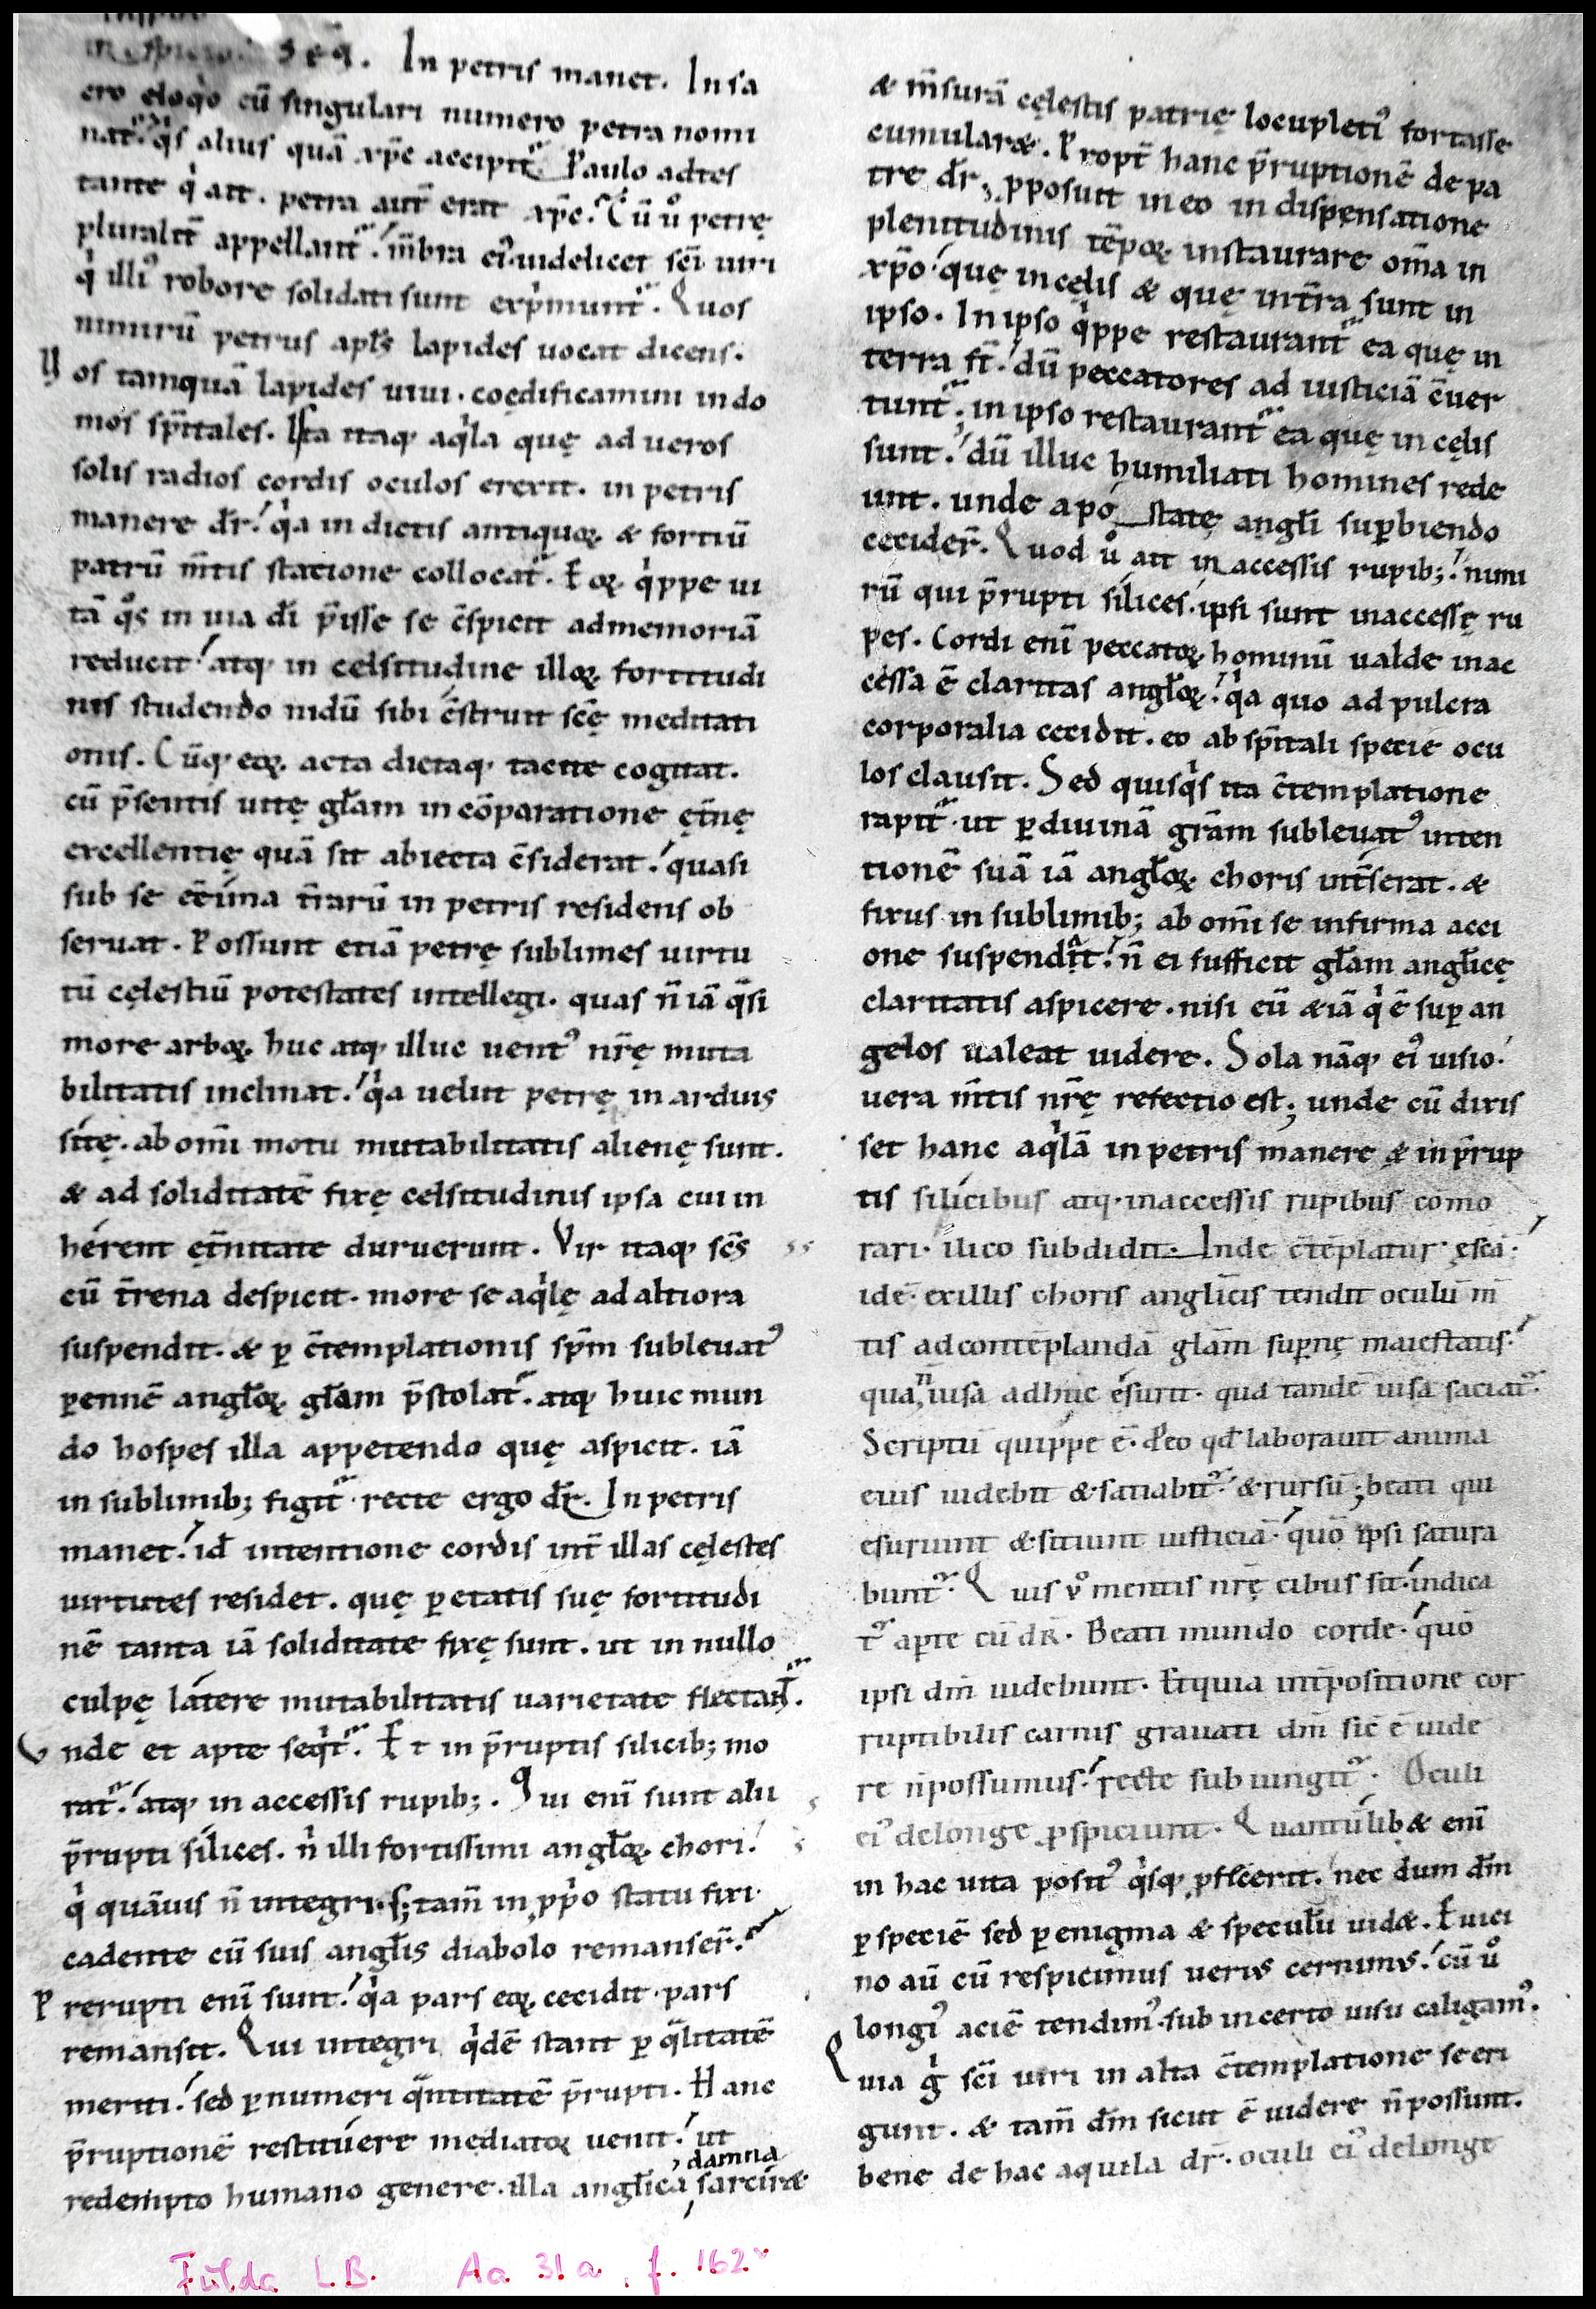 seq̅. In petris manet. In sa
cro eloq̊o cū singulari numero petra nomi
nat᷑. q̊s alius quā xp̄c accipit᷑. Paulo adtes
tante q̇ ait. petra aut̄ erat xp̄c. Cū ů petrę
pluralit̄ appellant᷑. m̄bra ei᾽ uidelicet sc̄i uiri
q̇ illi᾽ robore solidati sunt exṗmunt᷑. Quos
nimirū petrus apl̄s lapides uocat dicens.
Vos tamquā lapides uiui. coędificamini in do
mos sp̄itales. Ista itaq; aq̇la quę ad ueros
solis radios cordis oculos erexit. in petris
manere dr̄. q̇a in dictis antiquoꝝ & fortiū
patrū m̄tis statione collocat᷑. Eoꝝ q̇ppe ui
tā q̊s in uia dī p̄isse se c̄spicit ad memoriā
reducit. atq; in celsitudine illoꝝ fortitudi
nis studendo nidū sibi c̄struit sc̄ę meditati
onis. Cūq; eoꝝ acta dictaq; tacite cogitat.
cū p̄sentis uitę gl̄am in cōparatione ęt̄nę
excellentię quā sit abiecta c̄siderat. quasi
sub se et̄ima t̄rarū in petris residens ob
seruat. Possunt etiā petrę sublimes uirtu
tū cęlestiū potestates intellegi. quas n̄ iā q̄si
more arboꝝ huc atq; illuc uent᾽ nr̄ę muta
bilitatis inclinat. q̇a uelut petrę in arduis
sitę. ab om̄i motu mutabilitatis alienę sunt.
& ad soliditatē fixę celsitudinis ipsa cui in
herent ęt̄nitate duruerunt. Vir itaq; sc̄s
cū t̄rena despicit. more se aq̇lę ad altiora
suspendit. & ꝑ c̄templationis sp̄m subleuat᾽
ꝑennē angl̄oꝝ gl̄am p̄stolat᷑. atq; huic mun
do hospes illa appetendo quę aspicit. iā
in sublimib; figit᷑. recte ergo dr̄. In petris
manet. id̄ intentione cordis int̄ illas cęlestes
uirtutes residet. quę ꝑ etatis suę fortitudi
nē tanta iā soliditate fixę sunt. ut in nullo
culpę latere mutabilitatis uarietate flectant᷑.
Vnde et apte seq̇t᷑. Et in p̄ruptis silicib; mo
rat᷑. atq; in accessis rupib;. Qui eni̅ sunt alii
p̄rupti silices. n̊ illi fortissimi angl̄oꝝ chori.
q̇ quāuis n̄ integri. s; tam̄ in ꝓṗo statu fixi
cadente cū suis angl̄is diabolo remanser̄.
Prerupti eni̅ sunt. q̇a pars eoꝝ cecidit. pars
remansit. Qui integri q̇dē stant ꝑ q̄litatē
meriti. sed ꝑ numeri q̄ntitatē p̄rupti. Hanc
p̄ruptionē restituere mediatoꝝ uenit. ut
redempto humano genere. illa angl̄ica damna sarciræ
& m̄surā cęlestis patrię locupleti᾽ fortasse
cumularæ. Propt̄ hanc p̄ruptionē de pa
tre dr̄; ꝓposuit in eo in dispensatione
plenitudinis tēpoꝝ instaurare om̄a in
xp̄o. quę in cęlis & quę in t̄ra sunt in
ipso. In ipso q̇ppe restaurant᷑ ea quę in
terra st̄. dū peccatores ad iusticiā c̄uer
tunt᷑; in ipso restaurant᷑ ea quę in cęlis
sunt. dū illuc humiliati homines rede
unt. unde apostatę angl̄i suꝑbiendo
cecider̄. Quod ů ait in accessis rupib;. nimi
rū qui p̄rupti silices. ipsi sunt inaccessę ru
pes. Cordi eni̅ peccatoꝝ hominū ualde inac
cessa ē claritas angl̄oꝝ. q̇a quo ad pulcra
corporalia cecidit. eo ab sp̄itali specie ocu
los clausit. Sed quisq̇s ita c̄templatione
rapit᷑. ut ꝑ diuinā grām subleuat᾽ inten
tionē suā iā angl̄oꝝ choris int̄serat. &
fixus in sublimib; ab om̄i se infirma acci
one suspendit. n̄ ei sufficit gl̄am angl̄icę
claritatis aspicere. nisi eū &iā q̇ ē suꝑ an
gelos ualeat uidere. Sola nāq; ei᾽ uisio.
uera m̄tis nr̄ę refectio est; unde cū dixis
set hanc aq̇lā in petris manere & in p̄rup
tis silicibus atq; inaccessis rupibus como
rari. ilico subdidit. Inde c̄tēplatur ęscā.
idē. ex illis choris anglicis tendit oculū m̄
tis ad contēplandā gl̄am suꝑnę maiestatis.
qua n̄ uisa adhuc esurit. qua tandē uisa saciat᷑.
Scriptū quippe ē. ꝓ eo qd̄ laborauit anima
eius uidebit & satiabit᷑. & rursū; beati qui
esuriunt & sitiunt iusticiā. quō ipsi satura
bunt᷑. Quis v̊ mentis nr̄ę cibus sit. indica
t᷑ apte cū dr̄. Beati mundo corde. quō
ipsi dm̄ uidebunt. Et quia int̄positione cor
ruptibilis carnis grauati dm̄ sic̄ ē uide
re n̄ possumus. recte subiungit᷑. Oculi
ei᾽ de longe ꝓspiciunt. Quantūlib& eni̅
in hac uita posit᾽ q̇sq; ꝓfecerit. nec dum dm̄
ꝑ speciē sed ꝑ enigma & specul̄u uidæ. E uici
no aū cū respicimus uerius cernimus. cū ů
longi᾽ aciē tendim᾽. sub incerto uisu caligam᾽.
Quia g̊ sc̄i uiri in alta c̄templatione se eri
gunt. & tam̄ dm̄ sicut ē uidere n̄ possunt.
bene de hac aquila dr̄. oculi ei᾽ de longe
Fulda L.B. Aa 31a, f. 162v